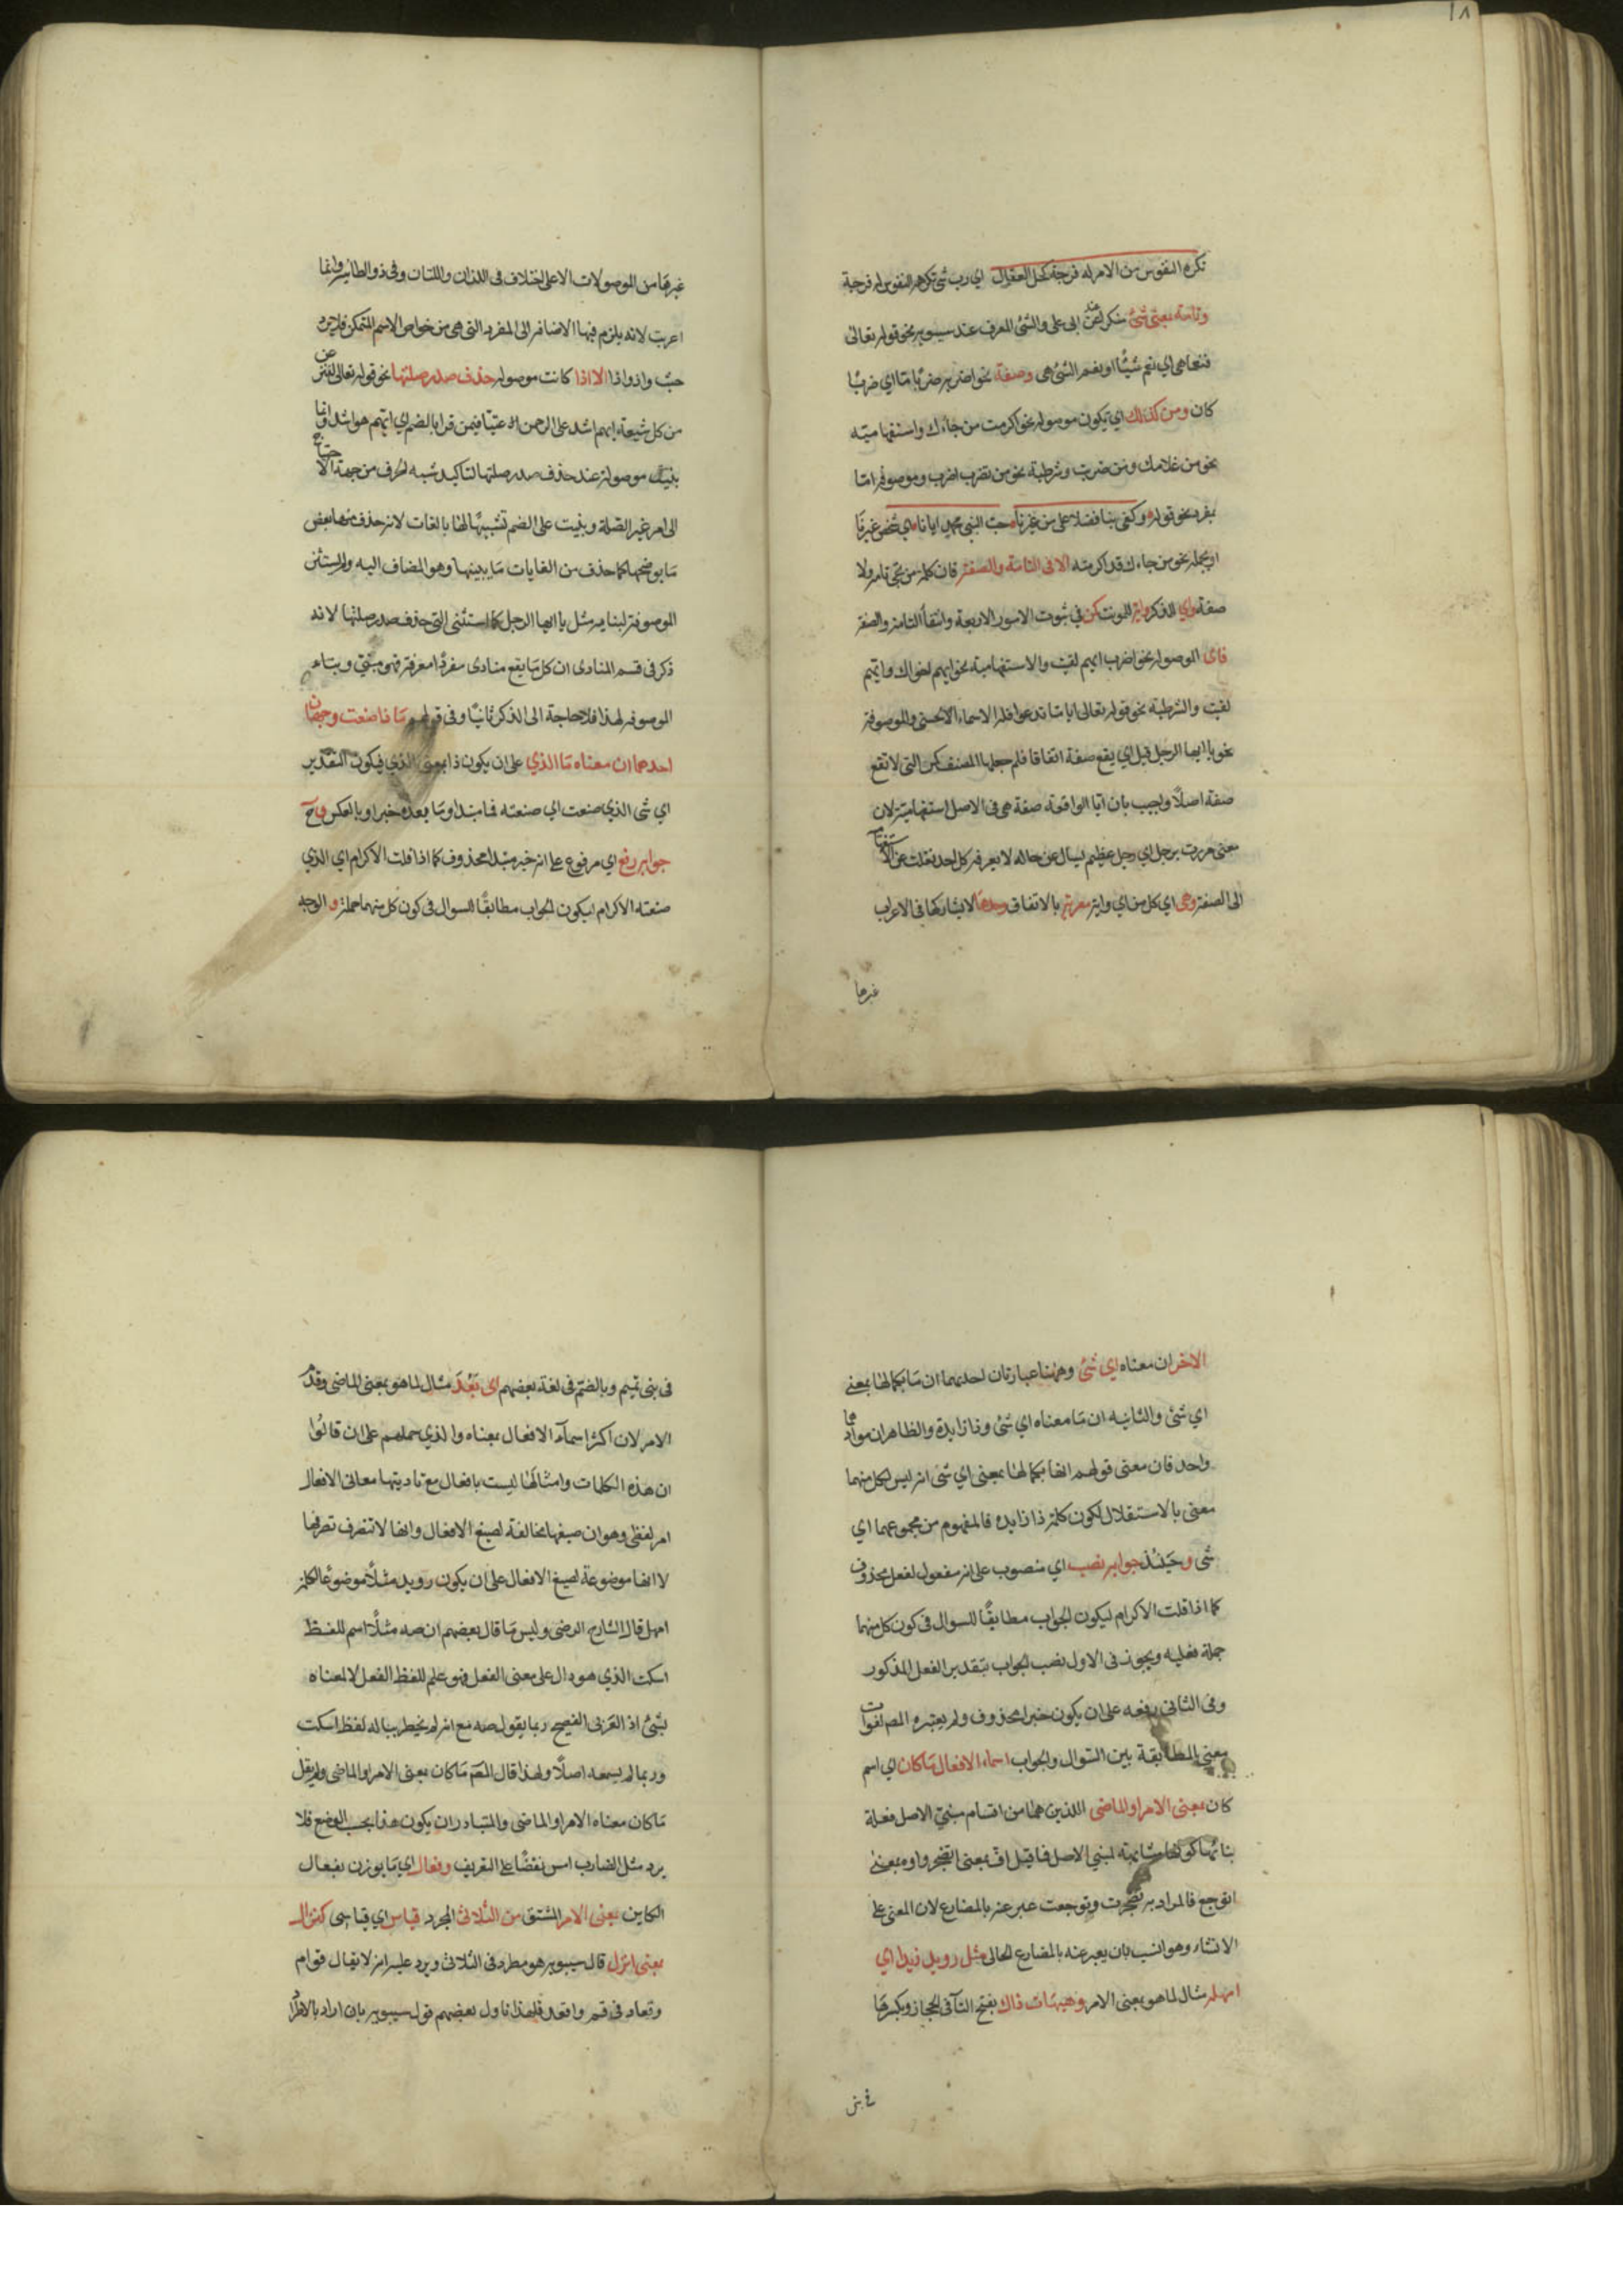 ١٨
تكره النفوس من الامر له فرجة كحل العقال اي رب شئ تكرهه النفوس له فرجة
وتامة بمعنى شئ منكر عند ابى على والشئ المعرف عند سيبويه نحو قوله تعالى
فنعما هي اي نعم شيئا او نعم الشئ هي وصفة نحو اضربه ضربا ما اي ضربا
كان ومن كذلك اي تكون موصولة نحو اكرمت من جاءك واستفهامية
نحو من غلامك ومن ضربت وشرطية نحو من تضرب اضرب وموصوفة اما
بمفرد نحو قوله وكفى بنا فضلا على من غيرنا حب النبي محمد ايانا اي شخص غيرنا
او بجملة نحو من جاءك قد اكرمته الا فى التامة والصفة فان كلمة من تجئ تامة ولا
صفة واي للذكر واية للمونث كمن في ثبوت الامور الاربعة وانتفاء التامة والصفة
فاى الموصولة نحو اضرب ايهم لقيت والاستفهامية نحو ايهم اخوك وايهم
لقيت والشرطية نحو قوله تعالى ايا ما تدعوا فله الاسماء الحسنى والموصوفة
نحو يا ايها الرجل قيل اي يقع صفة اتفاقا فلم جعلها المصنف كمن التى لا تقع
صفة اصلا واجيب بان ايا الواقعة صفة هى فى الاصل استفهامية لان
معنى مررت برجل اي رجل عظيم يسال عن حاله لا يعرفه كل احد نقلت عن الاستفهام
الى الصفة وهى اي كل من اي واية معربة بالاتفاق وحدها لا يشاركها فى الاعراب
غيرها
غيرها من الموصولات الا على اختلاف فى اللذان واللتان وفى ذو الطائية وانما
اعربت لانه يلزم فيها الاضافة الى المفرد التى هى من خواص الاسم المتمكن فلا يرد
حيث واذ واذا الا اذا كانت موصولة حذف صدر صلتها نحو قوله تعالى لننزعن
من كل شيعة ايهم اشد على الرحمن عتيا فيمن قرا بالضم اي ايهم هو اشد وانما
بنيت موصولة عند حذف صدر صلتها لتاكيد شبه الحرف من جهة الاحتياج
الى امر غير الصلة وبنيت على الضم تشبيها لها بالغايات لانه حذف منها بعض
ما يوضحها كما حذف من الغايات ما يبينها وهو المضاف اليه ولم يستثن
الموصوفة لبنا يه مثل يا ايها الرجل كما استثنى التى حذف صدر صلتها لانه
ذكر فى قسم المنادى ان كل ما يقع منادى مفردا معرفة فهو مبنى وبناء
الموصوفة لهذا فلا حاجة الى الذكر ثانيا وفى قولهم ما ذا صنعت وجهان
احدهما ان معناه ما الذي على ان يكون ذا بمعنى الذي فيكون التقدير
اي شى الذي صنعت اي صنعته فما مبتدا وما بعده خبر او بالعكس وح
جوابه رفع اي مرفوع على انه خبر مبتدا محذوف كما اذا قلت الاكرام اي الذي
صنعته الاكرام ليكون الجواب مطابقا للسوال فى كون كل منهما جملة والوجه
الاخر ان معناه اي شئ وههنا عبارتان احديهما ان ما بكمالها بمعنى
اي شئ والثانيه ان ما معناه اي شئ وذا زايدة والظاهر ان موادهما
واحد فان معنى قولهم انها بكمالها بمعنى اي شى انه ليس لكل منهما
معنى بالاستقلال لكون كلمة ذا زايده فالمفهوم من مجموعهما اي
شى وحينئذ جوابه نصب اي منصوب على انه مفعول لفعل محذوف
كما اذا قلت الاكرام ليكون الجواب مطابقا للسوال فى كون كل منهما
جملة فعليه ويجوز فى الاول نصب الجواب بتقدير الفعل المذكور
وفى الثانى رفعه على ان يكون خبرا لمحذوف ولم يعتبره المص لفوات
معنى المطابقة بين السوال والجواب اسماء الافعال ما كان اي اسم
كان بمعنى الامر او الماضى اللذين هما من اقسام مبنى الاصل فعلة
بنائها كونها مشابهة لمبني الاصل فما قيل اف بمعنى اتضجر واوه بمعنى
اتوجع فالمراد به تضجرت وتوجعت عبر عنه بالمضارع لان المعنى على
الانشاء وهو انسب بان يعبر عنه بالمضارع الحالى مثل رويد زيدا اي
امهله مثال لما هو بمعنى الامر وهيهات ذاك بفتح التآ فى الحجاز وبكسرها
فى بنى
فى بنى تميم وبالضم فى لغة بعضهم اى بعد مثال لما هو بمعنى الماضى وقدم
الامر لان اكثر اسمآء الافعال بمعناه والذي حملهم على ان قالوا
ان هذه الكلمات وامثالها ليست بافعال مع تاديتها معانى الافعال
امر لفظى وهو ان صيغها مخالفة لصيغ الافعال وانها لا تتصرف تصرفها
لا انها موضوعة لصيغ الافعال على ان يكون رويد مثلا موضوعا لكلمة
امهل قال الشارح الرضى وليس ما قال بعضهم ان صه مثلا اسم للفظ
اسكت الذي هو دال على معنى الفعل فهو علم للفظ الفعل لا لمعناه
بشئ اذ العربى الفصيح ربما يقول صه مع انه لم يخطر بباله لفظ اسكت
وربما لم يسمعه اصلا ولهذا قال المص ما كان بمعنى الامر او الماضى ولم يقل
ما كان معناه الامر او الماضى والمتبادر ان يكون هذا بحسب الوضع فلا
يرد مثل الضارب امس نقضا على التعريف وفعال اي ما يوزن بفعال
الكاين بمعنى الامر المشتق من الثلاثى المجرد قياس اي قياسى كنزال
بمعنى انزل قال سيبويه هو مطرد فى الثلاثى ويرد عليه انه لا يقال قوام
وقعاد فى قم واقعد فلهذا تاول بعضهم قول سيبويه بان اراد بالاطراد